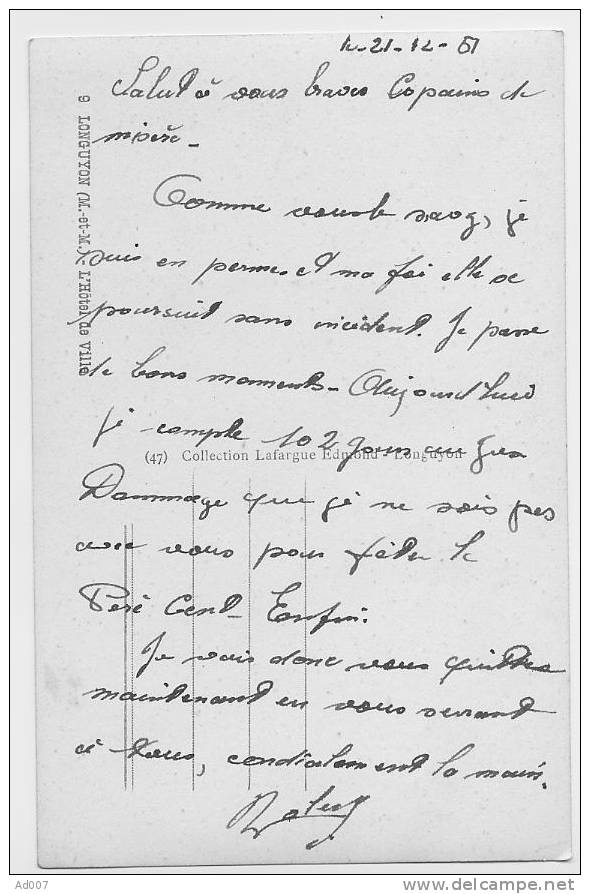 le 21-12-51
Salut à vous braves Copains de
misère -
Comme vous le savez, je
suis en perme. et ma foi elle se
poursuit sans incident. Je passe
de bons moments - Aujourd'hui
je compte 102 jours au
Dommage que je ne sois pas
avec vous pour fêter le
Père Cent - Enfin.
Je vais donc vous quitter
maintenant en vous serrant
à tous, cordialement la main.
9 LONGUYON (M.-et-M.) - L'Hôtel de Ville
(47) Collection Lafargue Edmond - Longuyon
Ad007
delcampe.net